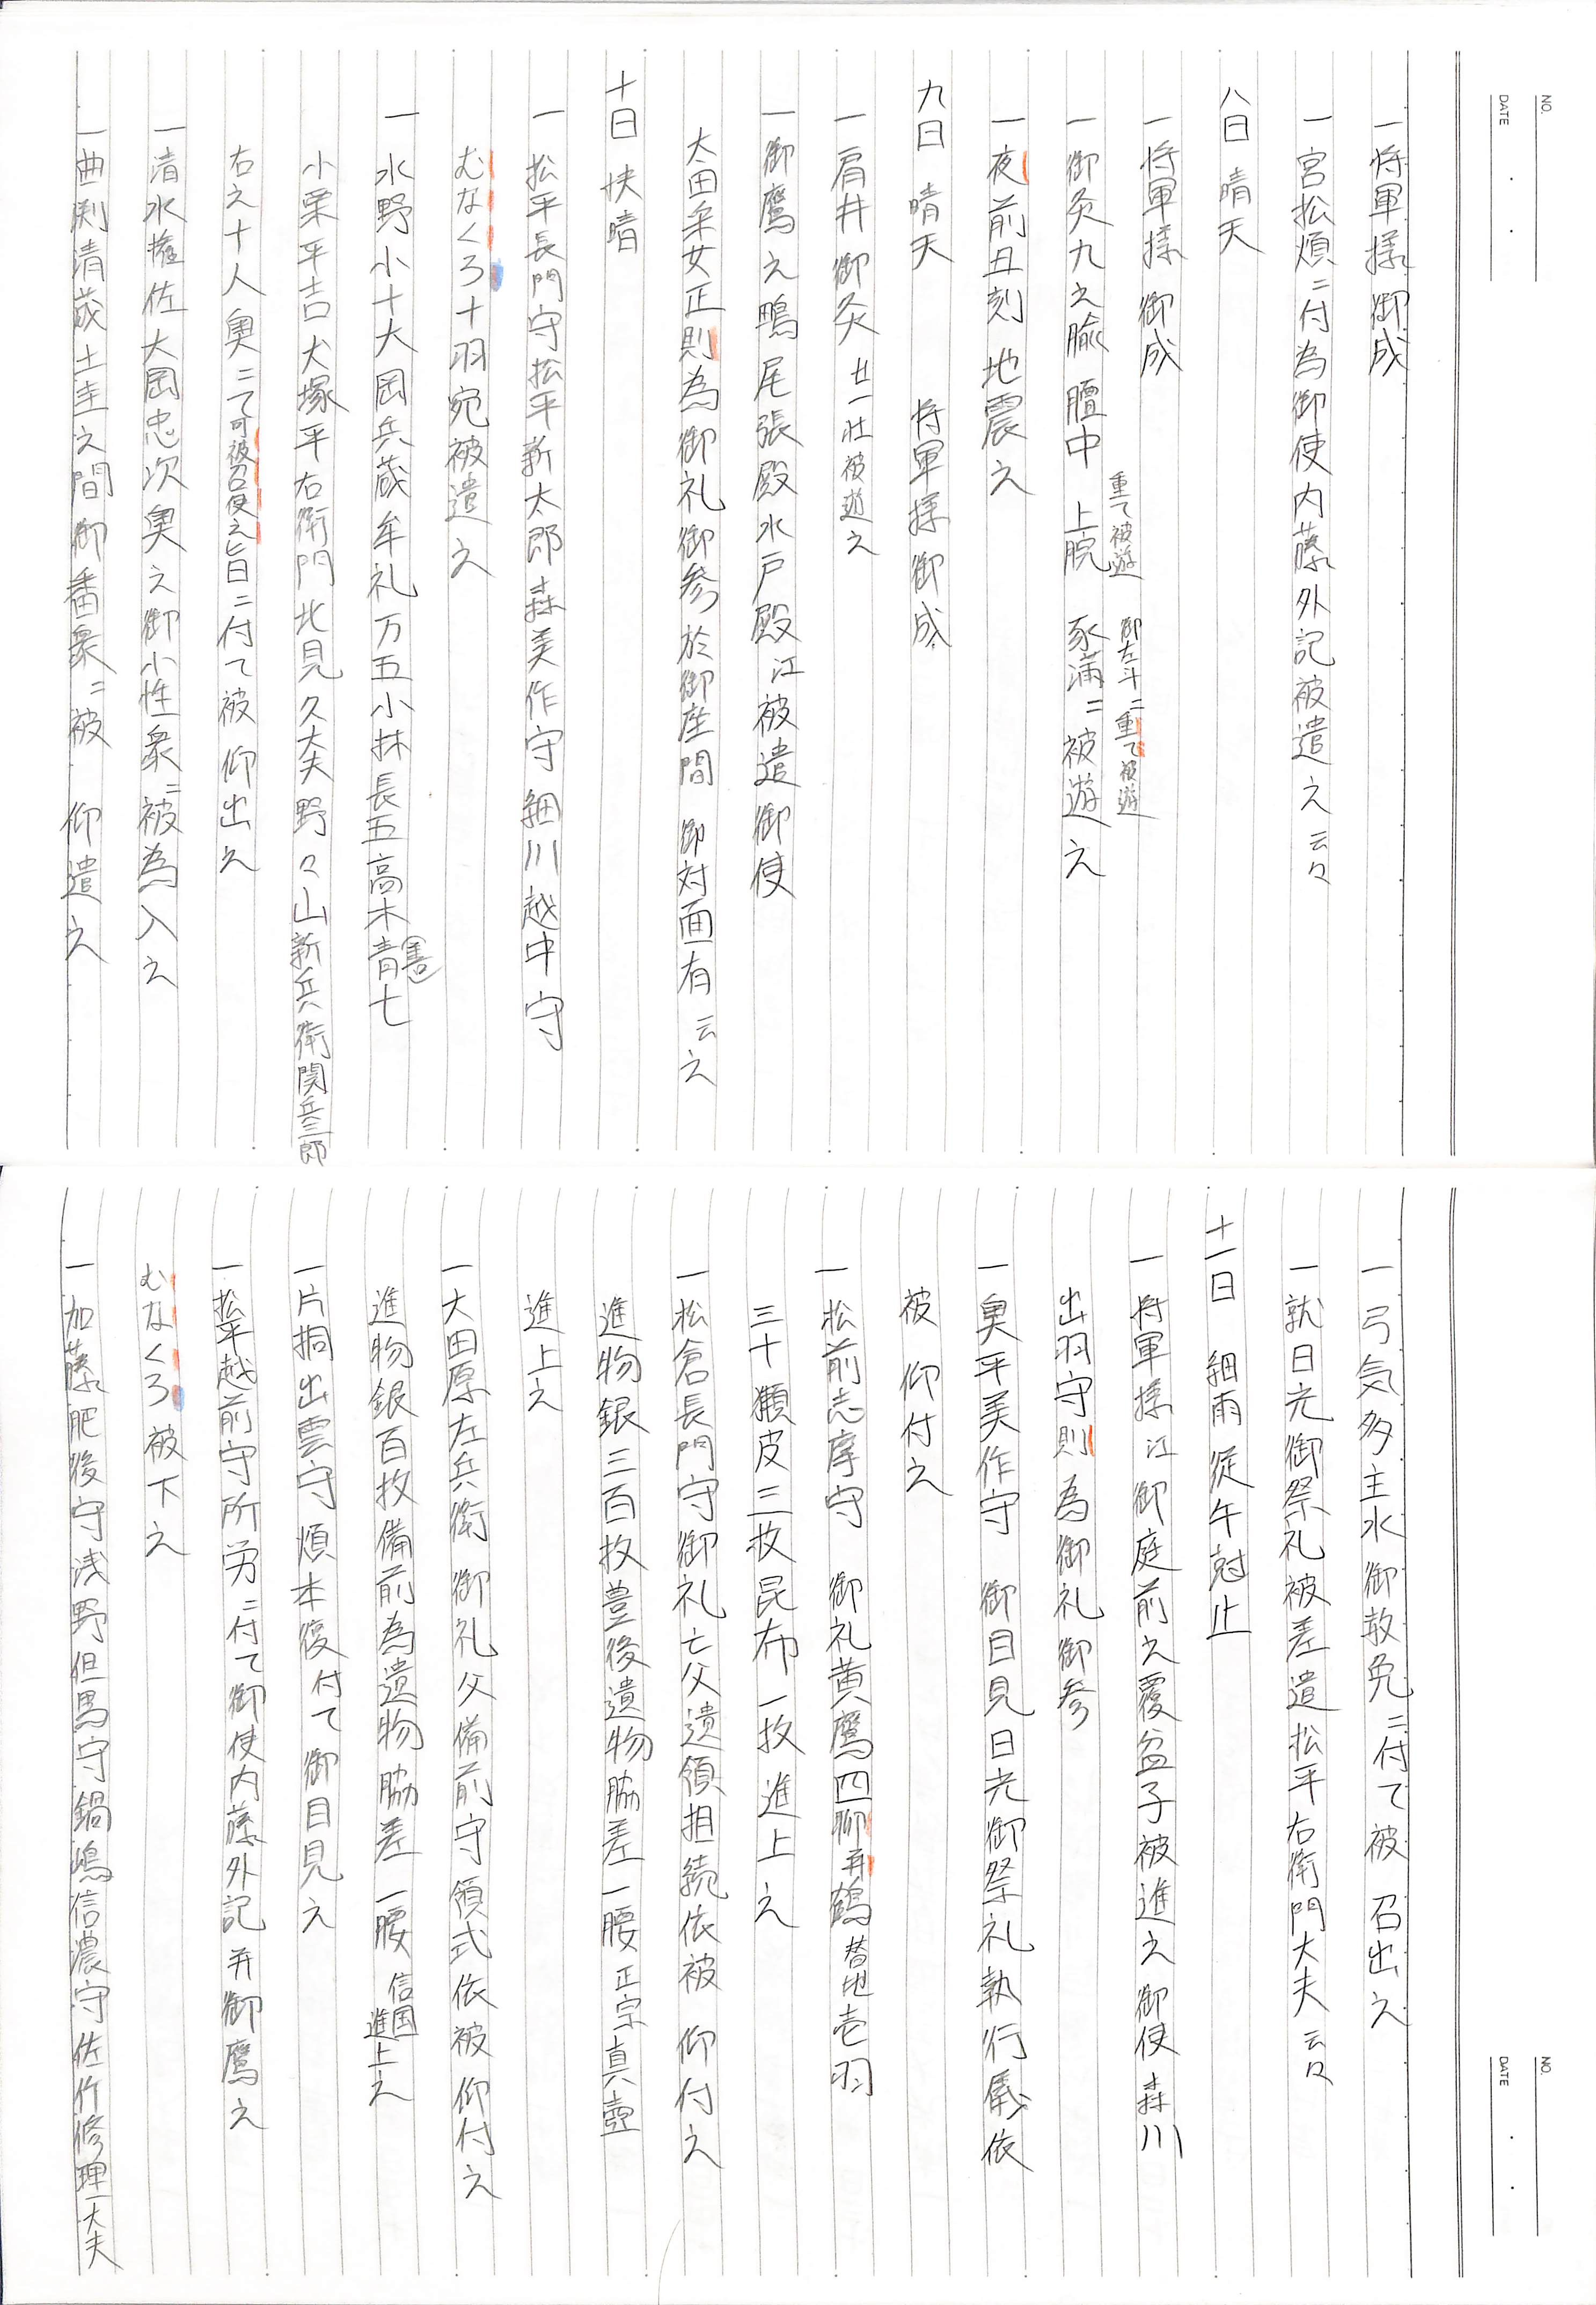 NO.
DATE
一将軍様 御成
一宮松煩ニ付為御使内藤外記被遣之云々
八日 晴天
一将軍様 御成
一御灸九之腧 膻中 上脘 重て被遊 豕満ニ被遊之 御左斗ニ重て被遊
一夜前丑刻 地震之
九日 晴天 将軍様御成
一肩井御灸 廿一壮被遊之
一御鷹之鴨尾張殿水戸殿江被遣御使
太田采女正則為御礼御参於御座間 御対面有 云之
十日 快晴
一松平長門守松平新太郎森美作守細川越中守
むなくろ十羽宛被遣之
一水野小十大岡兵蔵牟礼万五小林長五高木青七 善
小栗平吉犬塚平右衛門北見久大夫野々山新兵衛関兵三郎
右之十人奥ニて可被召使之旨ニ付て被 仰出之
一清水権佐大岡忠次奥之御小性衆ニ被為入之
一曲渕清蔵土圭之間御番衆ニ被 仰遣之
NO.
DATE
一弓気多主水御赦免ニ付て被 召出之
一就日光御祭礼被差遣松平右衛門大夫云々
十一日 細雨従午尅止
一将軍様江御庭前之覆盆子被進之御使森川
出羽守則為御礼御参
一奥平美作守 御目見日光御祭礼執行儀依
被 仰付之
一松前志摩守 御礼黄鷹四聯再鶴替地壱羽
三十獺皮三枚昆布一枚進上之
一松倉長門守御礼亡父遺領相続依被 仰付之
進物銀三百枚豊後遺物脇差一腰正宗真壺
進上之
一大田原左兵衛 御礼父備前守領式依被仰付之
進物銀百枚備前為遺物脇差一腰 信国 進上之
一片桐出雲守煩本復付て御目見之
一松平越前守所労ニ付て御使内藤外記并御鷹之
むなくろ被下之
一加藤肥後守浅野但馬守鍋嶋信濃守佐竹修理大夫